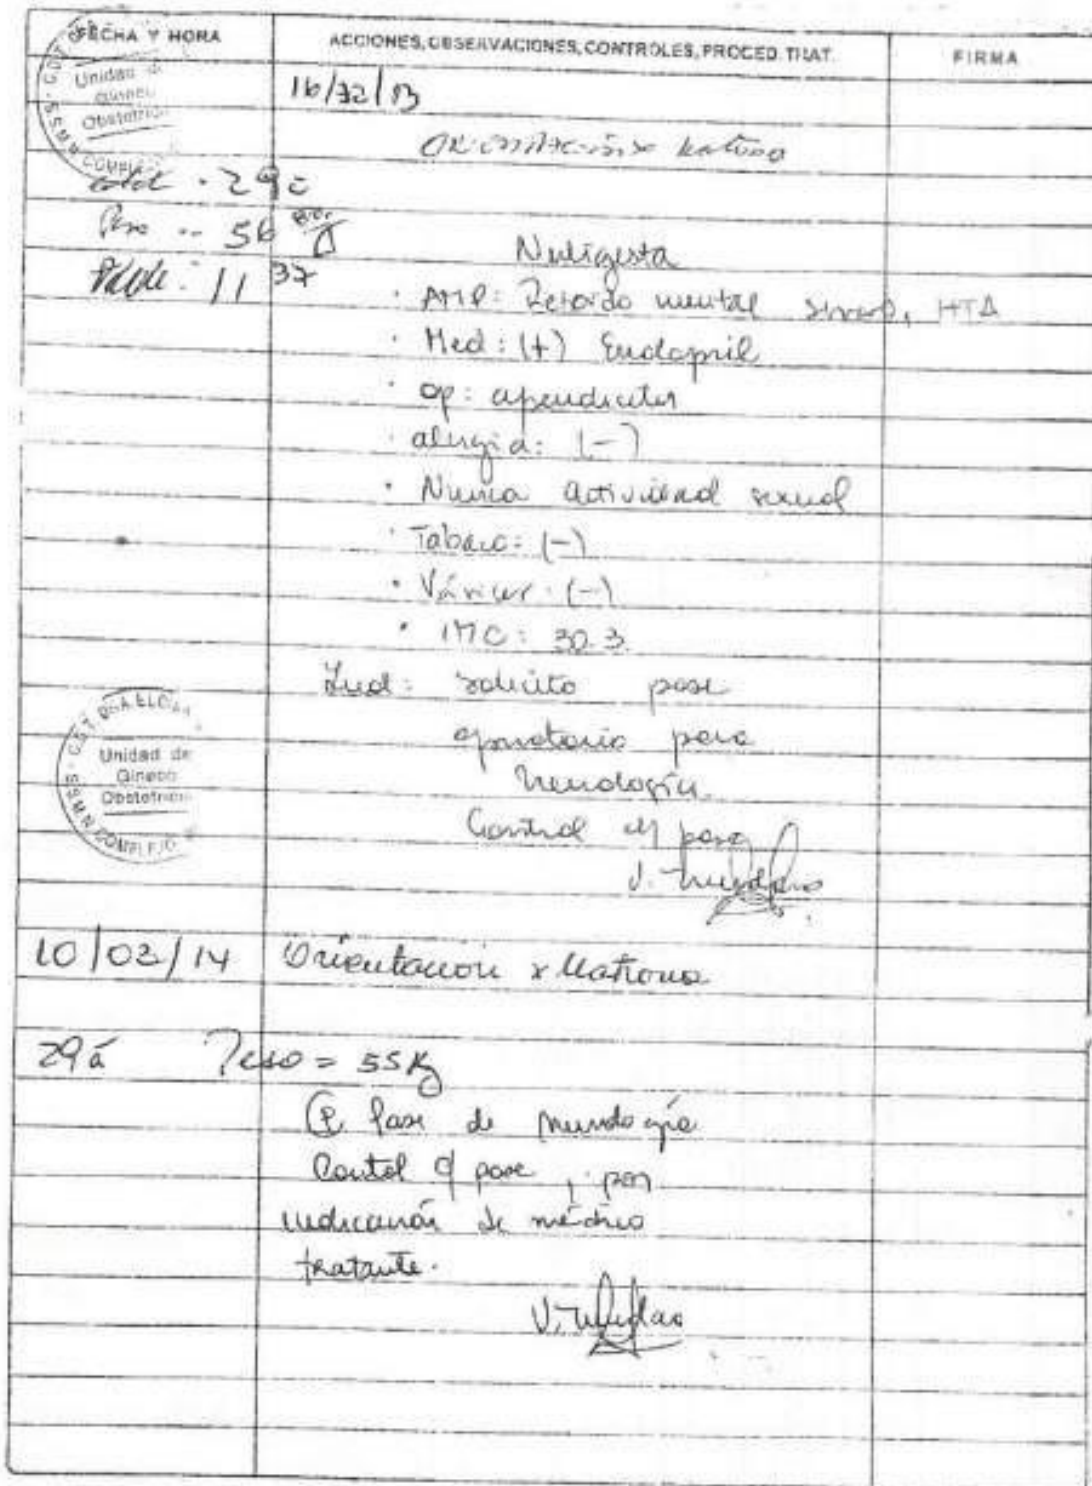 FECHA Y HORA
ACCIONES, OBSERVACIONES, CONTROLES, PROCED. TRAT.
FIRMA
Unidad de
Gineco
Obstetricia
16/12/13
Orientación x Matrona
Edad: 29a
Peso: 56
Nuligesta
• AMP: Retardo mental HTA
• Med: (+) Enalapril
• Op: apendicitis
• alergia: (-)
• Nunca actividad sexual
• Tabaco: (-)
• Várices: (-)
• IMC: 30.3
Ind: Solicito pase
operatorio para
Neurología
Control c/ pase
Unidad de
Gineco
Obstetricia
COMPLEJO
10/03/14 Orientación x Matrona
29á Peso = 55 Kg
(P) Pase de Neurología
Control c/ pase, por
indicación de médico
tratante.